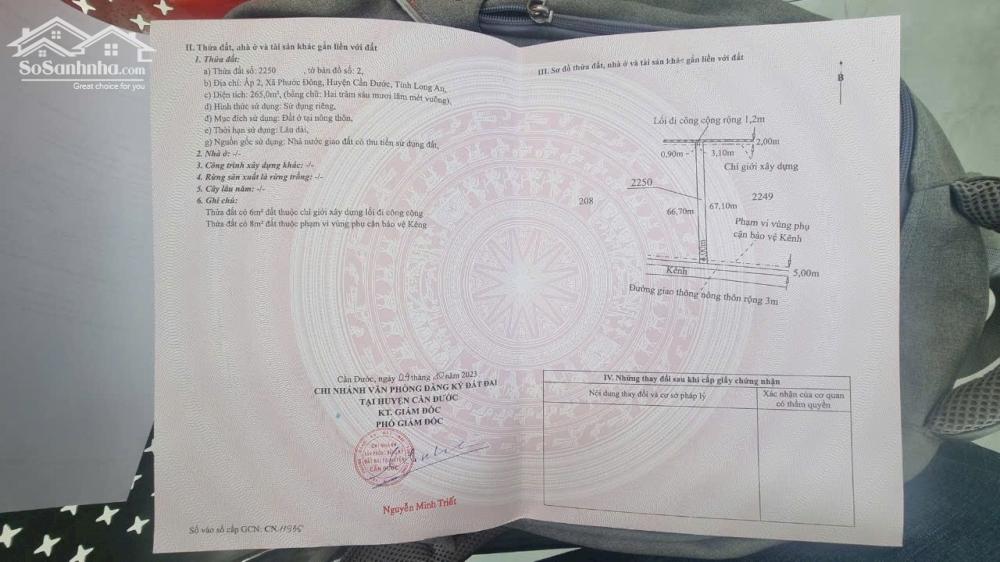 SoSanhnha.com
Great choice for you
II. Thửa đất, nhà ở và tài sản khác gắn liền với đất
1. Thửa đất:
a) Thửa đất số: 2250 , tờ bản đồ số: 2,
b) Địa chỉ: Ấp 2, Xã Phước Đông, Huyện Cần Đước, Tỉnh Long An,
c) Diện tích: 265,0m², (bằng chữ: Hai trăm sáu mươi lăm mét vuông),
d) Hình thức sử dụng: Sử dụng riêng,
đ) Mục đích sử dụng: Đất ở tại nông thôn,
e) Thời hạn sử dụng: Lâu dài,
g) Nguồn gốc sử dụng: Nhà nước giao đất có thu tiền sử dụng đất,
2. Nhà ở: -/-
3. Công trình xây dựng khác: -/-
4. Rừng sản xuất là rừng trồng: -/-
5. Cây lâu năm: -/-
6. Ghi chú:
Thửa đất có 6m² đất thuộc chỉ giới xây dựng lối đi công cộng
Thửa đất có 8m² đất thuộc phạm vi vùng phụ cận bảo vệ Kênh
Cần Đước, ngày 09 tháng 10 năm 2023
CHI NHÁNH VĂN PHÒNG ĐĂNG KÝ ĐẤT ĐAI
TẠI HUYỆN CẦN ĐƯỚC
KT. GIÁM ĐỐC
PHÓ GIÁM ĐỐC
CẦN ĐƯỚC
Nguyễn Minh Triết
Số vào sổ cấp GCN: CN
III. Sơ đồ thửa đất, nhà ở và tài sản khác gắn liền với đất
B
Lối đi công cộng rộng 1,2m
2,00m
0,90m
3,10m
Chỉ giới xây dựng
2250
2249
208
66,70m
67,10m
Phạm vi vùng phụ
cận bảo vệ Kênh
4,00m
Kênh
5,00m
Đường giao thông nông thôn rộng 3m
IV. Những thay đổi sau khi cấp giấy chứng nhận
Nội dung thay đổi và cơ sở pháp lý
Xác nhận của cơ quan
có thẩm quyền